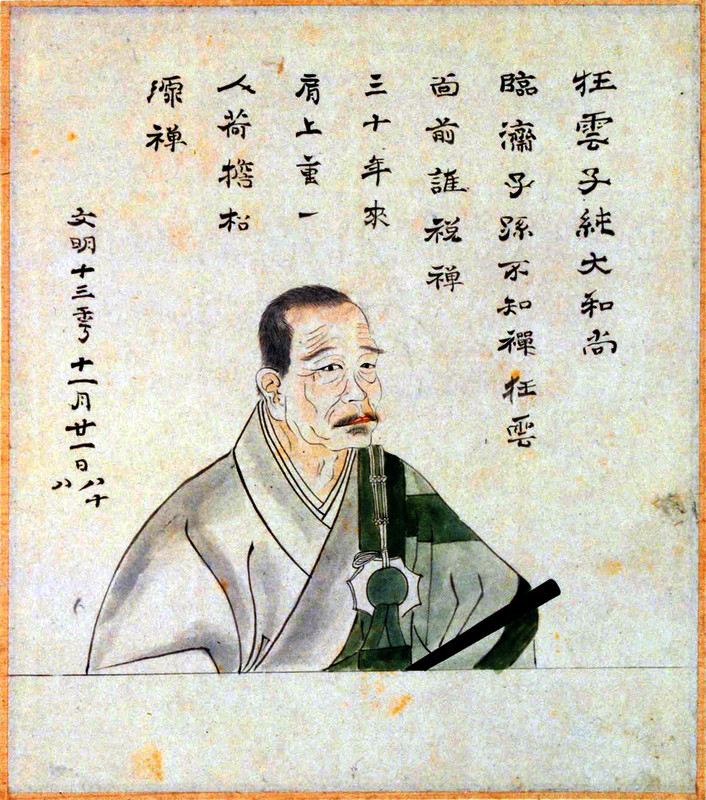 狂雲子純大和尚
臨濟子孫不知禅狂雲
面前誰説禅
三十年来
肩上重一
人荷擔松
源禅
文明十三季十一月廿一日八十
八